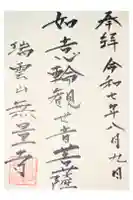 奉拝 令和七年八月九日
如意輪観世音菩薩
瑞雲山無量寺